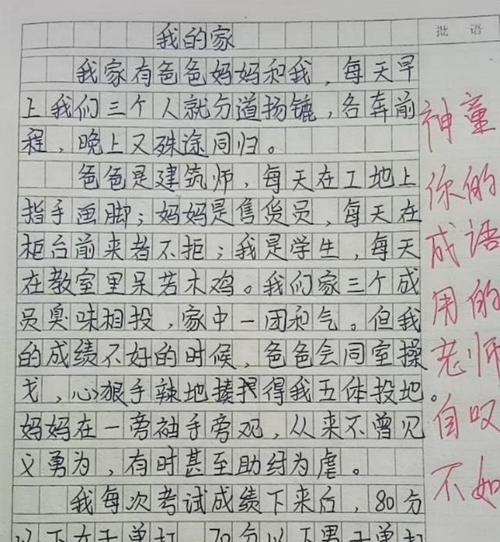 批语
我的家
我家有爸爸妈妈和我，每天早
上我们三个人就分道扬镳，各奔前
程，晚上又殊途同归。
爸爸是建筑师，每天在工地上
指手画脚；妈妈是售货员，每天在
柜台前来者不拒；我是学生，每天
在教室里呆若木鸡。我们家三个成
员臭味相投，家中一团和气。但我
的成绩不好的时候，爸爸会同室操
戈，心狠手辣地揍得我五体投地。
妈妈在一旁袖手旁观，从来不曾见
义勇为，有时甚至助纣为虐。
我每次考试成绩下来后，80分
以下女子单打，70分以下男子单打
神童
你的
成语
用的
老师
自叹
不如